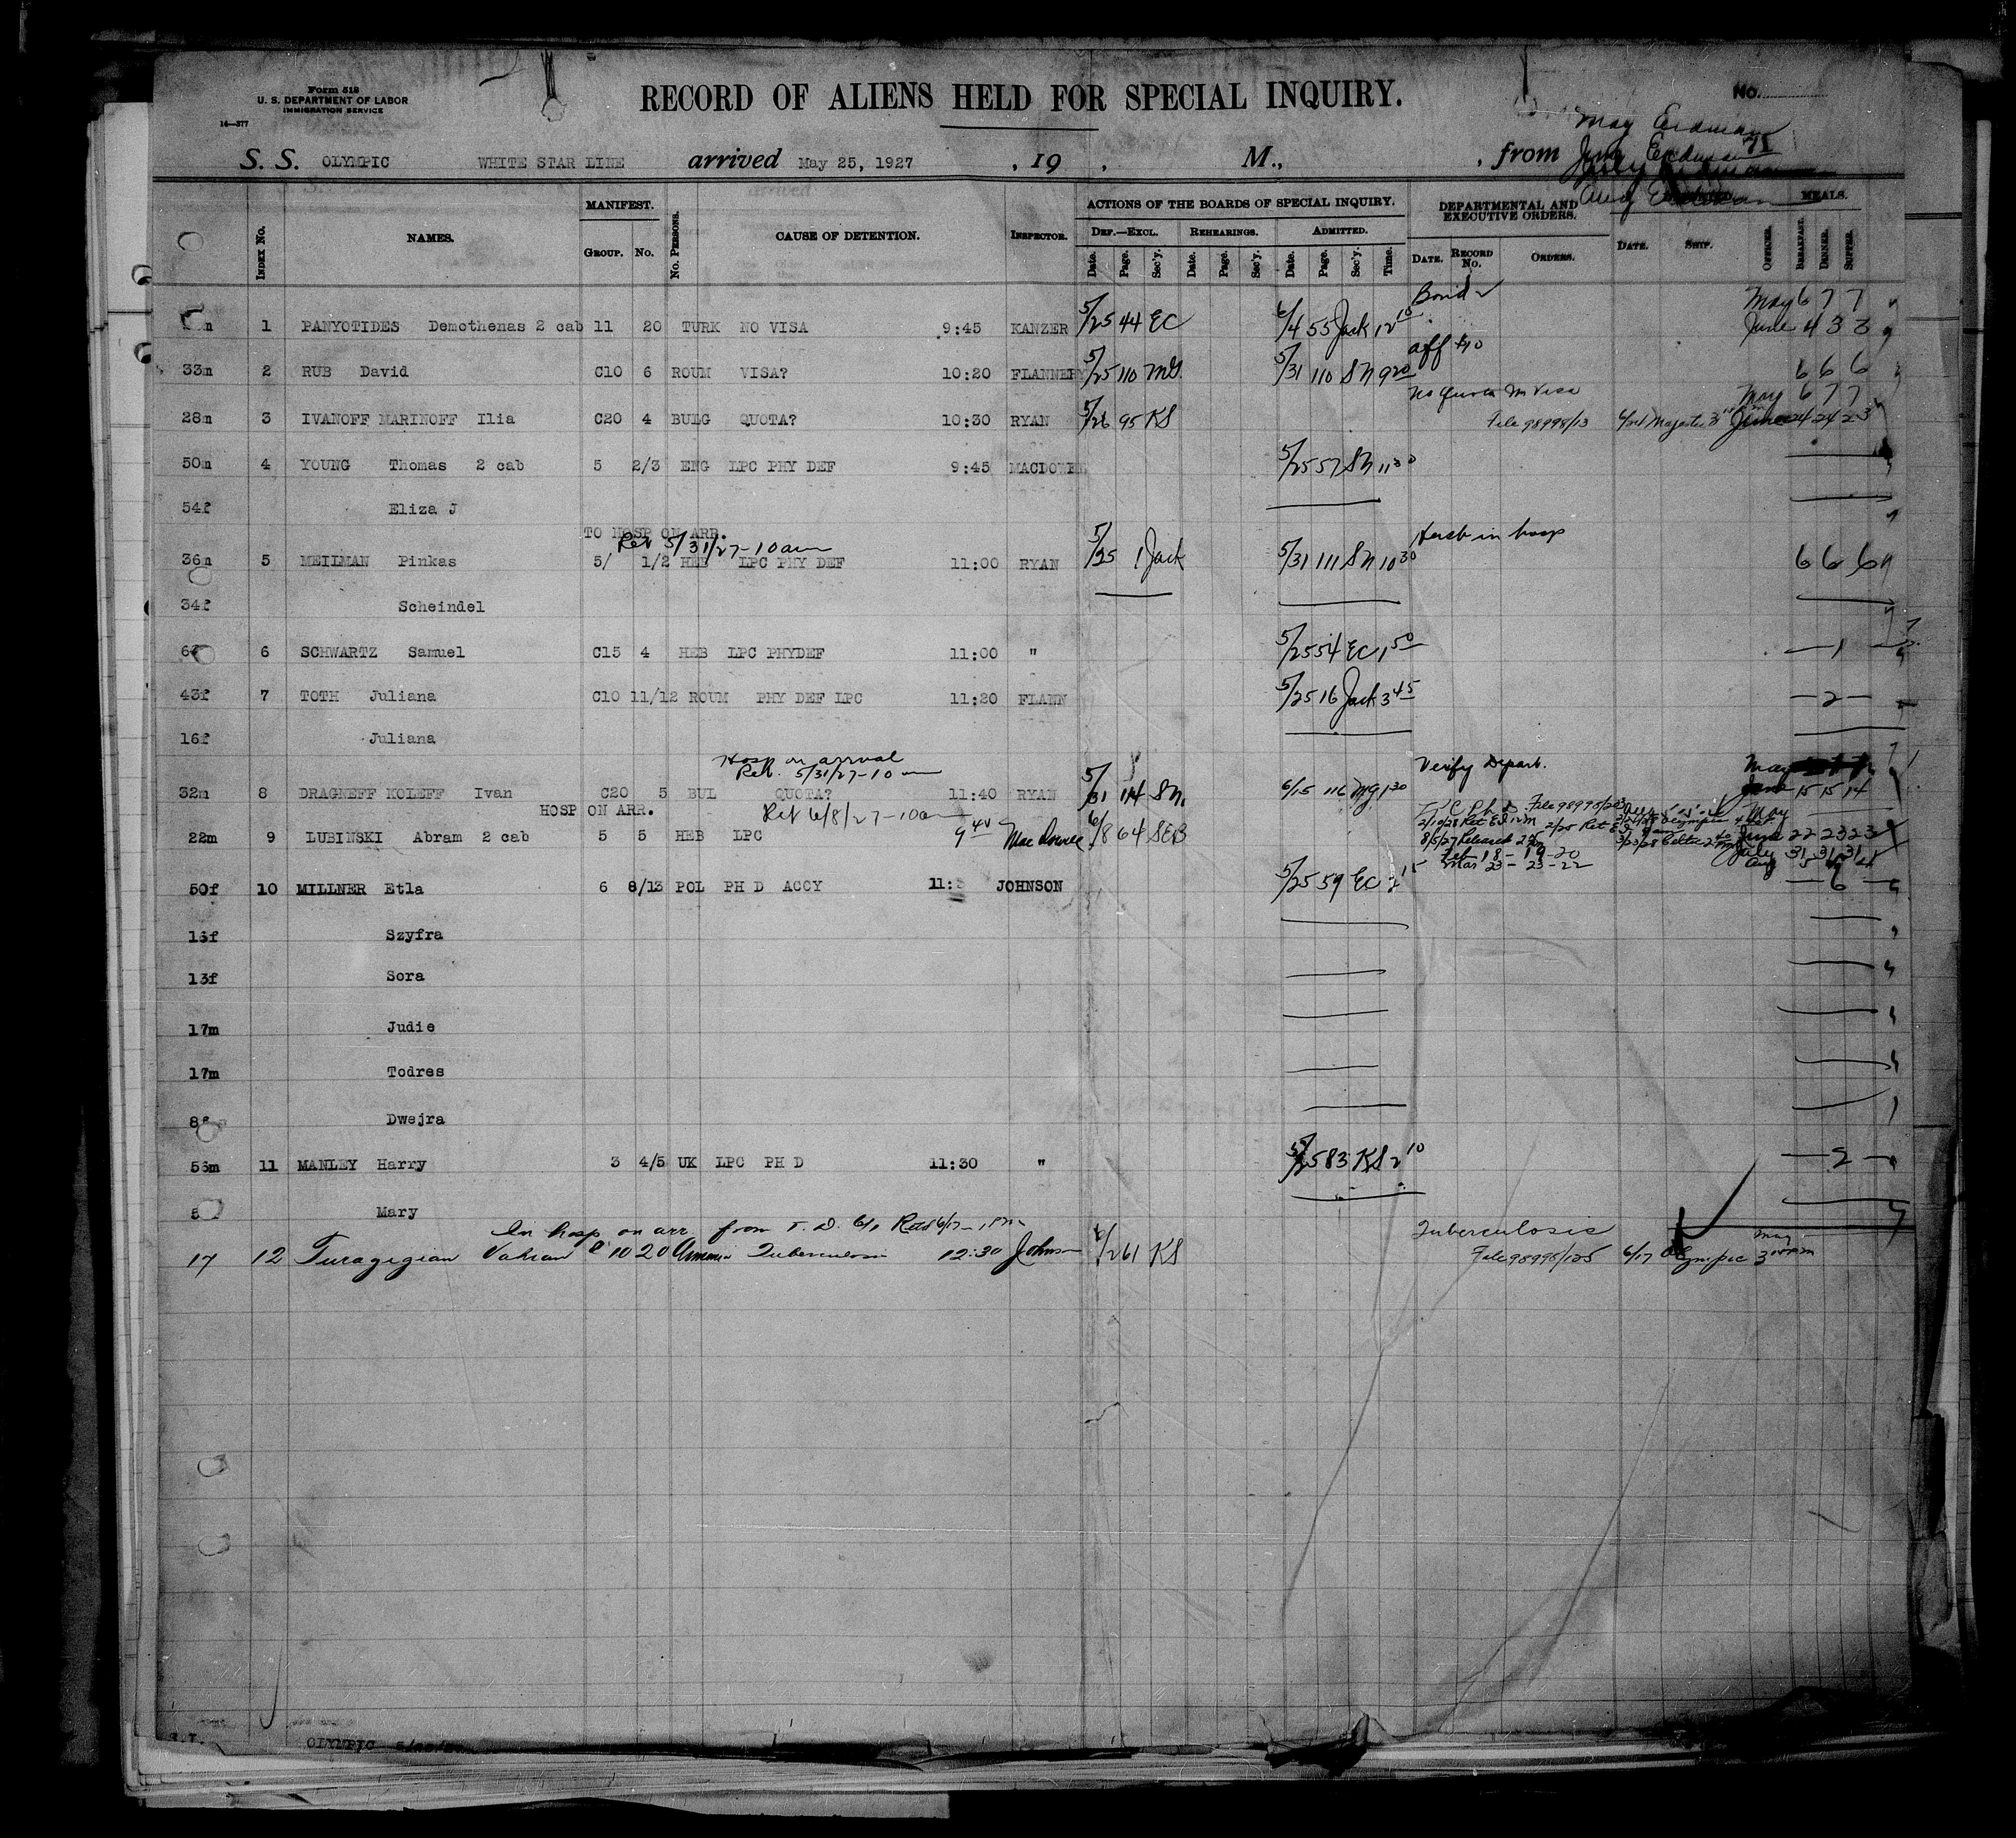 Form 518
U. S. DEPARTMENT OF LABOR
IMMIGRATION SERVICE
14—377
RECORD OF ALIENS HELD FOR SPECIAL INQUIRY.
No.
May Erdman
June Erdman 71
July Erdman
Aug Erdman
S. S. OLYMPIC WHITE STAR LINE arrived May 25, 1927 , 19 , M., , from
INDEX No. NAMES. MANIFEST. GROUP. No. No. PERSONS. CAUSE OF DETENTION. INSPECTOR. ACTIONS OF THE BOARDS OF SPECIAL INQUIRY. DEF.—EXCL. Date. Page. Sec'y. REHEARINGS. Date. Page. Sec'y. ADMITTED. Date. Page. Sec'y. Time. DEPARTMENTAL AND EXECUTIVE ORDERS. DATE. RECORD No. ORDERS. DATE. SHIP. OFFICER. MEALS. BREAKFAST. DINNER. SUPPER.
Bond May 6 7 7
1 PANYOTIDES Demothenas 2 cab 11 20 TURK NO VISA 9:45 KANZER 5/25 44 EC 6/4 55 Jack 12 10 June 4 3 3
aff $10
33m 2 RUB David C10 6 ROUM VISA? 10:20 FLANNERY 5/25 110 MG 5/31 110 SN 9 20 6 6 6
No Quota Im Visa May 6 7 7
28m 3 IVANOFF MARINOFF Ilia C20 4 BULG QUOTA? 10:30 RYAN 5/26 95 KS File 98998/13 Majestic June 24 24 23
50m 4 YOUNG Thomas 2 cab 5 2/3 ENG LPC PHY DEF 9:45 5/25 57 SN 11 30
54f Eliza J
TO HOSP ON ARR.
Ret 5/31/27-10am
36m 5 MEILMAN Pinkas 5/ 1/2 HEB LPC PHY DEF 11:00 RYAN 5/25 1 Jack 5/31 111 SN 10 30 in hosp 6 6 6
34f Scheindel
6 SCHWARTZ Samuel C15 4 HEB LPC PHYDEF 11:00 " 5/25 54 EC 1 50 — 1 —
43f 7 TOTH Juliana C10 11/12 ROUM PHY DEF LPC 11:20 FLANN 5/25 16 Jack 3 45 — 2 —
16f Juliana
Hosp on arrival
Ret. 5/31/27-10 am Verify Depart.
32m 8 DRAGNEFF KOLEFF Ivan C20 5 BUL QUOTA? 11:40 RYAN 5/31 114 SN. 6/15 116 MG 1 30 June 15 15 14
HOSP ON ARR. Ret 6/8/27-10am
22m 9 LUBINSKI Abram 2 cab 5 5 HEB LPC 9 40 6/8 64 SEB June 22 23 23
July 31 31 31
Feb 18 - 19 - 20
Mar 23 - 23 - 22
50f 10 MILLNER Etla 6 8/13 POL PH D ACCY 11: JOHNSON 5/25 59 EC 2 15 — 6 —
Szyfra
13f Sora
17m Judie
17m Todres
Dwejra
56m 11 MANLEY Harry 3 4/5 UK LPC PH D 11:30 " 5/25 83 KS 2 10 — 2 —
Mary
In hosp on arr. from
Tuberculosis
17 12 Turagigian Vahran C 10 20 Tuberculosis 12:30 Johnson 6/2 61 KS File 98998/125 6/17 Olympic
OLYMPIC